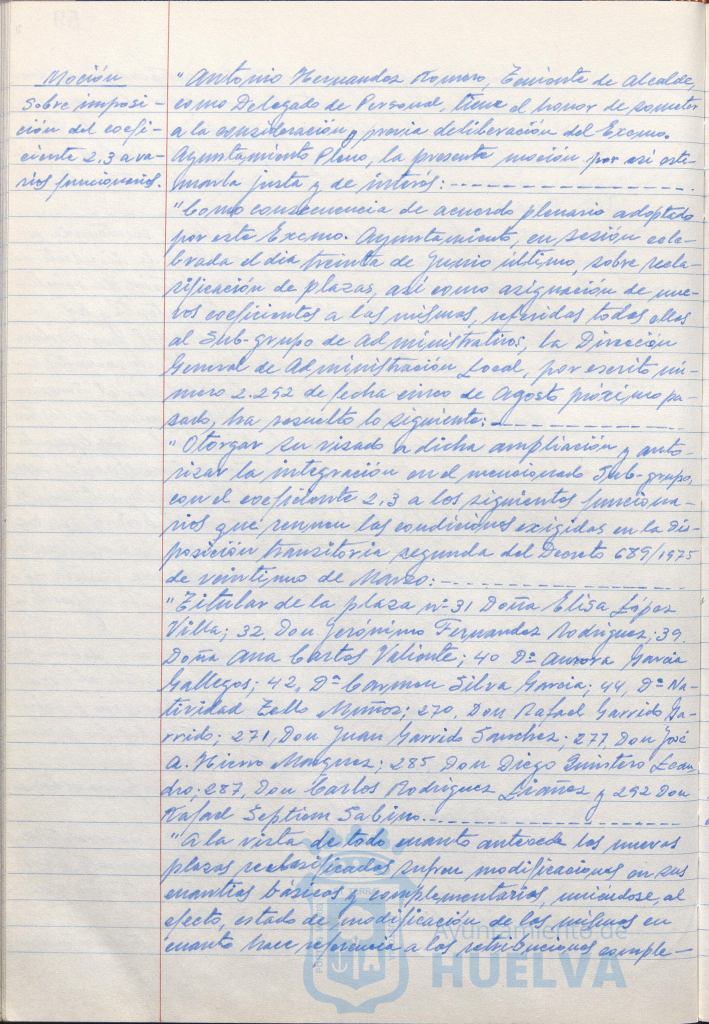 Moción
Sobre imposi-
ción del coefi-
ciente 2,3 a va-
rios funcionarios.
"Antonio Hernandez Romero, Teniente de Alcalde,
como Delegado de Personal, tiene el honor de someter
a la consideración y previa deliberación del Excmo.
Ayuntamiento Pleno, la presente moción por así esti-
marla justa y de interés:
"Como consecuencia de acuerdo plenario adoptado
por este Excmo. Ayuntamiento, en sesión cele-
brada el día treinta de Junio último, sobre recla-
sificación de plazas, así como asignación de nue-
vos coeficientes a las mismas, referidas todas ellas
al Sub-grupo de Administrativos, la Dirección
General de Administración Local, por escrito nú-
mero 2.292 de fecha cinco de Agosto próximo pa-
sado, ha resuelto lo siguiente:
"Otorgar su visado a dicha ampliación y auto-
rizar la integración en el mencionado Sub-grupo,
con el coeficiente 2,3 a los siguientes funciona-
rios que reunen las condiciones exigidas en la dis-
posición transitoria segunda del Decreto 689/1975
de veintiuno de Marzo:
"Titular de la plaza nº 31 Doña Elisa López
Villa; 32, Don Jerónimo Fernandez Rodriguez; 39.
Doña Ana Bartos Valiente; 40 Dª Aurora Garcia
Gallegos; 42, Dª Carmen Silva Garcia; 44, Dª Na-
tividad Tello Muñoz; 270, Don Rafael Garrido Ga-
rrido; 271, Don Juan Garrido Sanchez; 277, Don José
A. Hierro Marquez; 285 Don Diego Quintero Lean-
dro; 287, Don Carlos Rodriguez Liañez y 292 Don
Rafael Septiem Sabino.
"A la vista de todo cuanto antecede las nuevas
plazas reclasificadas sufren modificaciones en sus
cuantías básicas y complementarias, uniéndose, al
efecto, estado de modificación de las mismas en
cuanto hace referencia a las retribuciones comple-
Ayuntamiento de
HUELVA